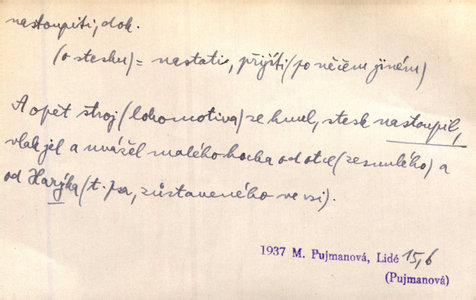 nastoupiti, dok.
(o stesku) = nastati, přijíti (po něčem jiném)
A opět stroj (lokomotiva) se hnul, stesk nastoupil,
vlak jel a unášel malého hocha od otce (zesnulého) a
od Harýka (t. psa, zůstaveného ve vsi).
1937 M. Pujmanová, Lidé 15,6
(Pujmanová)